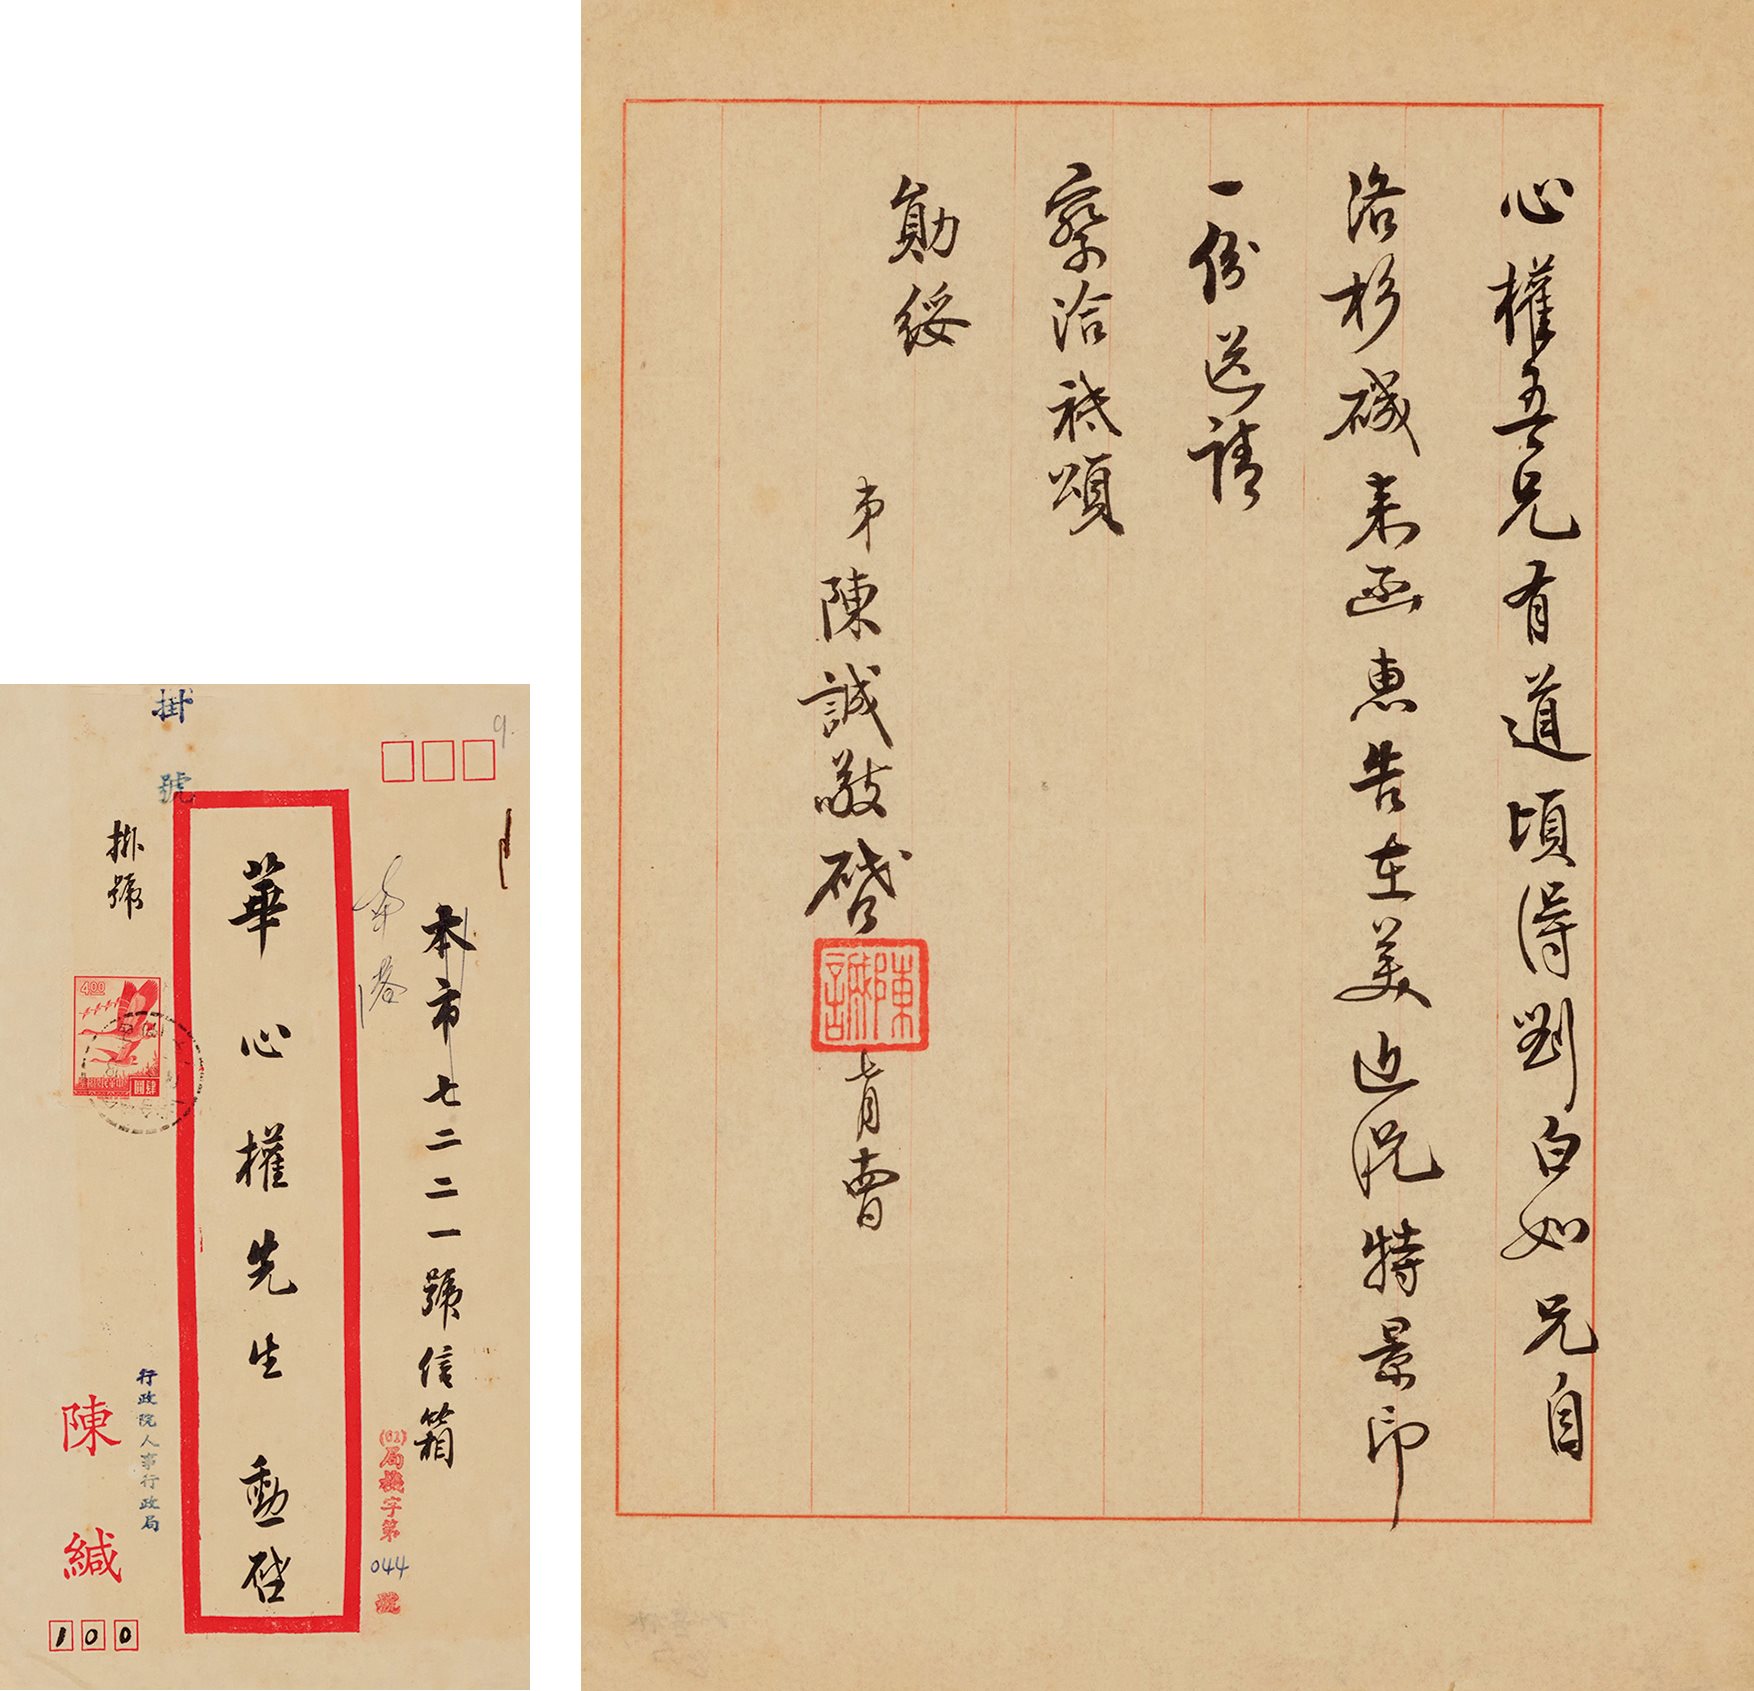 心權吾兄有道頃得劉白如兄自
洛杉磯來函惠告在美近況特景印
一份送請
察洽祗頌
勛綏
弟陳誠敬啓 七月十四日
陳誠
本市七二二一號信箱
(61)局機字第044號
華心權先生 勳啓
掛號
掛號
4.00
肆圓
行政院人事行政局
陳緘
100
9.